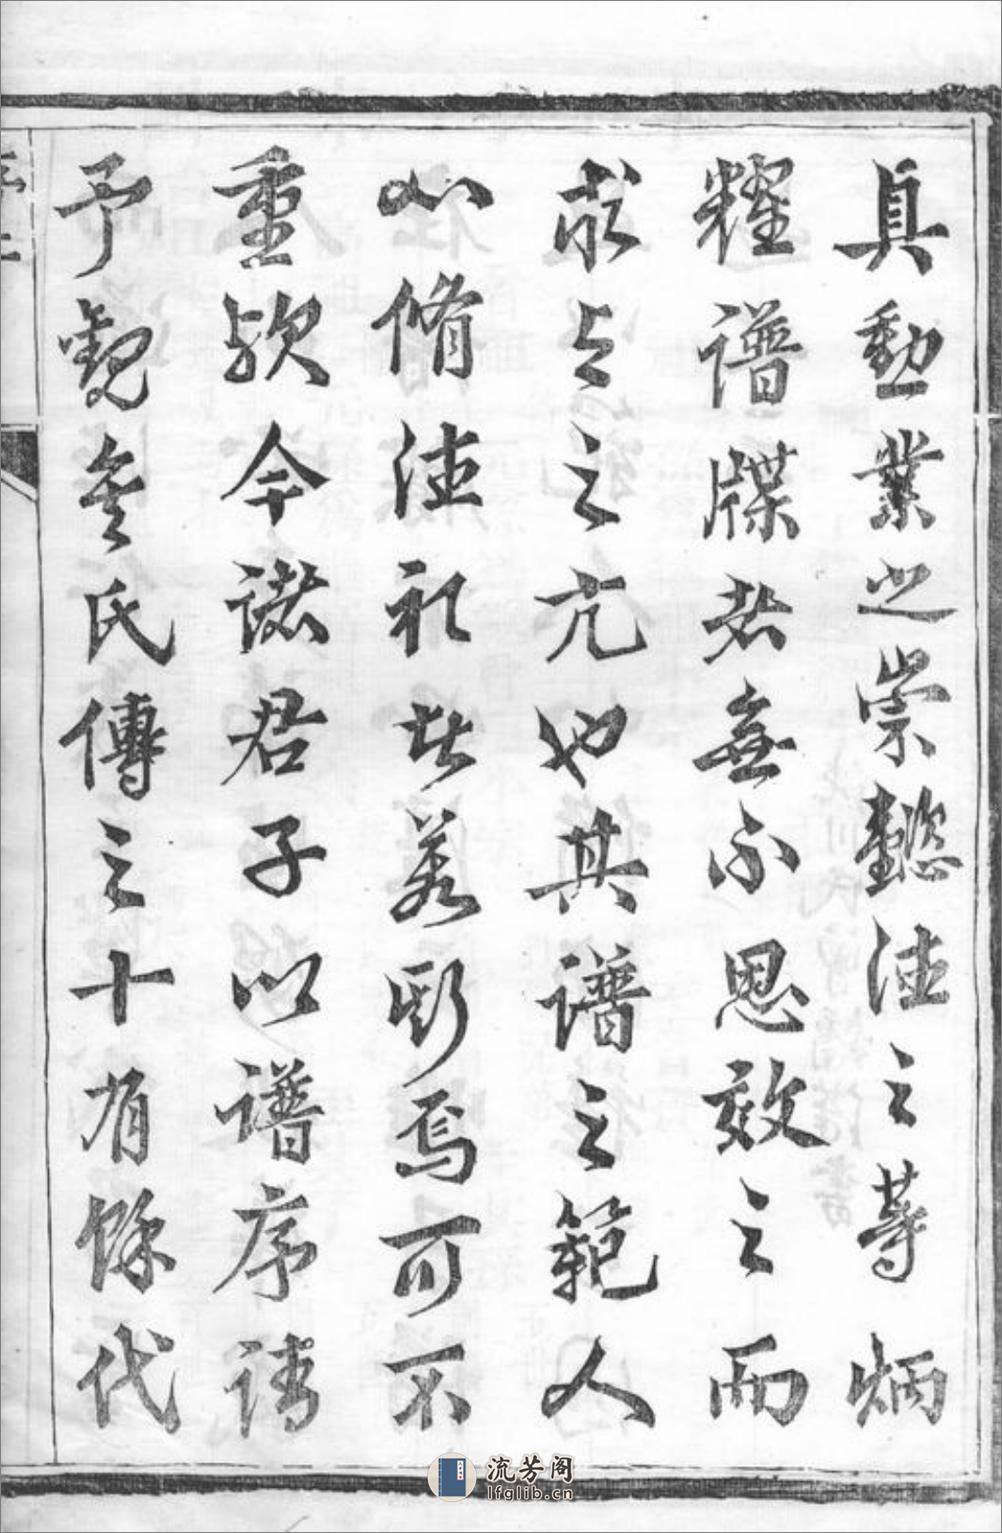 真勳業之崇懿法之等炳
耀譜牒者無不思效之而
求與之亢也其譜之範人
心脩法礼甚若斯焉可不
重歟今諸君子以譜序請
予觀金氏傳之十有餘代
流芳阁
lfglib.cn